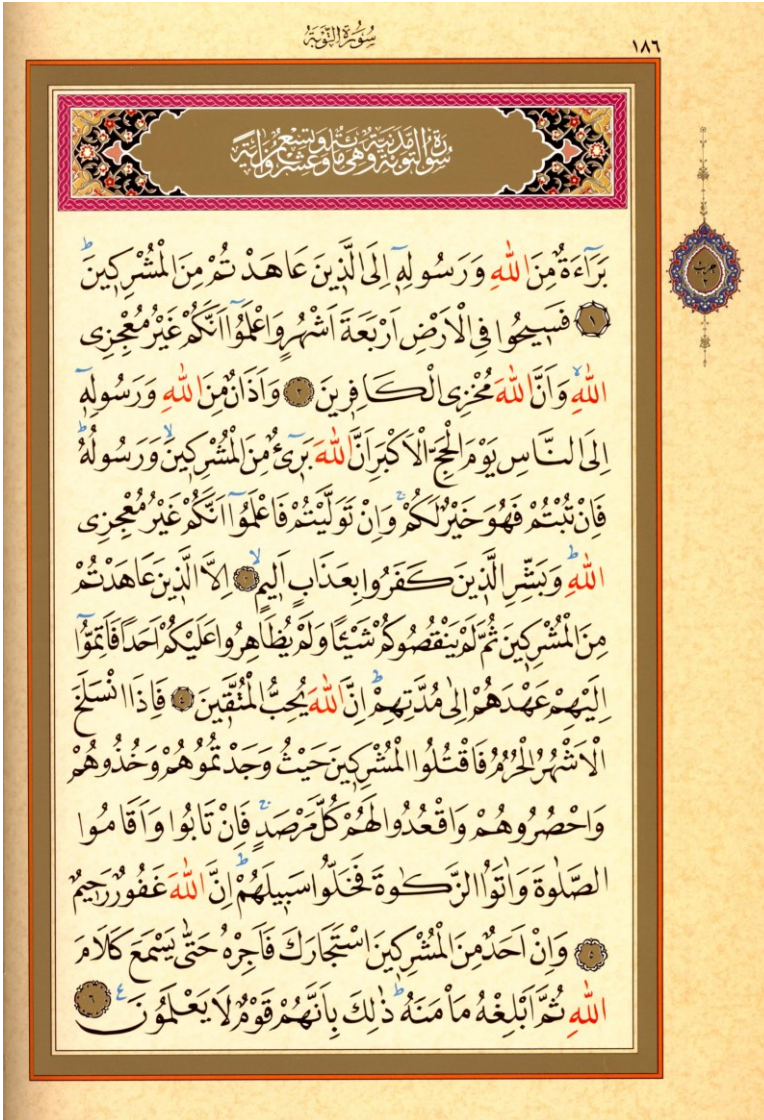 سُورَةُ التَّوْبَةِ
١٨٦
سُورَةُ التَّوْبَةِ مَدَنِيَّةٌ وَهِيَ مِائَةٌ وَتِسْعٌ وَعِشْرُونَ اٰيَةً
حزب ٢
بَرَٓاءَةٌ مِنَ اللّٰهِ وَرَسُولِهٖٓ اِلَى الَّذٖينَ عَاهَدْتُمْ مِنَ الْمُشْرِكٖينَۜ
﴿١﴾ فَسٖيحُوا فِي الْاَرْضِ اَرْبَعَةَ اَشْهُرٍ وَاعْلَمُٓوا اَنَّكُمْ غَيْرُ مُعْجِزِي
اللّٰهِۙ وَاَنَّ اللّٰهَ مُخْزِي الْكَافِرٖينَ ﴿٢﴾ وَاَذَانٌ مِنَ اللّٰهِ وَرَسُولِهٖٓ
اِلَى النَّاسِ يَوْمَ الْحَجِّ الْاَكْبَرِ اَنَّ اللّٰهَ بَرٖٓيءٌ مِنَ الْمُشْرِكٖينَۙ وَرَسُولُهُۜ
فَاِنْ تُبْتُمْ فَهُوَ خَيْرٌ لَكُمْۚ وَاِنْ تَوَلَّيْتُمْ فَاعْلَمُٓوا اَنَّكُمْ غَيْرُ مُعْجِزِي
اللّٰهِۜ وَبَشِّرِ الَّذٖينَ كَفَرُوا بِعَذَابٍ اَلٖيمٍۙ ﴿٣﴾ اِلَّا الَّذٖينَ عَاهَدْتُمْ
مِنَ الْمُشْرِكٖينَ ثُمَّ لَمْ يَنْقُصُوكُمْ شَيْـًٔا وَلَمْ يُظَاهِرُوا عَلَيْكُمْ اَحَدًا فَاَتِمُّٓوا
اِلَيْهِمْ عَهْدَهُمْ اِلٰى مُدَّتِهِمْۜ اِنَّ اللّٰهَ يُحِبُّ الْمُتَّقٖينَ ﴿٤﴾ فَاِذَا انْسَلَخَ
الْاَشْهُرُ الْحُرُمُ فَاقْتُلُوا الْمُشْرِكٖينَ حَيْثُ وَجَدْتُمُوهُمْ وَخُذُوهُمْ
وَاحْصُرُوهُمْ وَاقْعُدُوا لَهُمْ كُلَّ مَرْصَدٍۚ فَاِنْ تَابُوا وَاَقَامُوا
الصَّلٰوةَ وَاٰتَوُا الزَّكٰوةَ فَخَلُّوا سَبٖيلَهُمْۜ اِنَّ اللّٰهَ غَفُورٌ رَحٖيمٌ
﴿٥﴾ وَاِنْ اَحَدٌ مِنَ الْمُشْرِكٖينَ اسْتَجَارَكَ فَاَجِرْهُ حَتّٰى يَسْمَعَ كَلَامَ
اللّٰهِ ثُمَّ اَبْلِغْهُ مَأْمَنَهُۜ ذٰلِكَ بِاَنَّهُمْ قَوْمٌ لَا يَعْلَمُونَ ع ﴿٦﴾